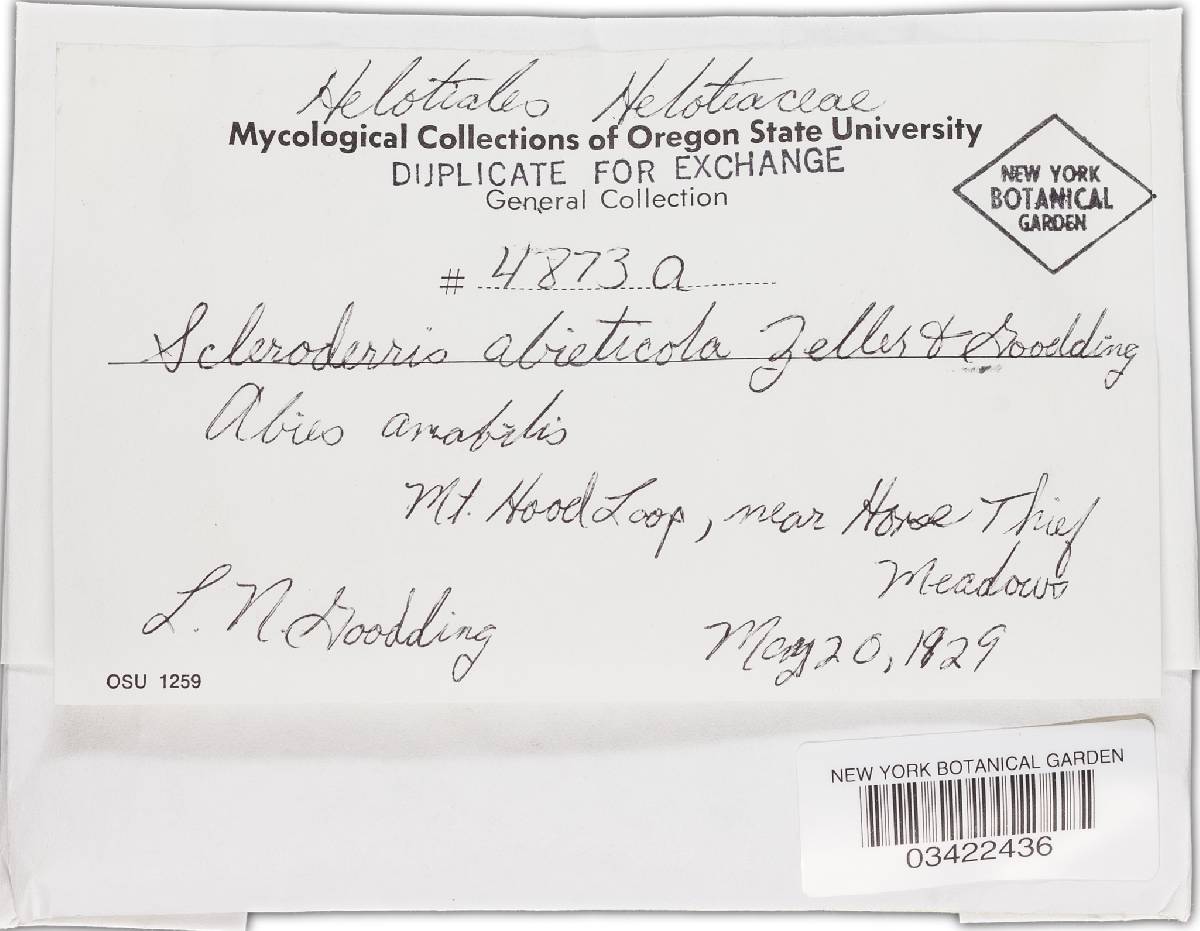 Helotiales Helotiaceae
Mycological Collections of Oregon State University
DUPLICATE FOR EXCHANGE
General Collection
NEW YORK
BOTANICAL
GARDEN
# 4873 a
Scleroderris abieticola Zeller & Goodding
Abies amabilis
Mt. Hood Loop, near Horse Thief
Meadows
L. N. Goodding
May 20, 1929
OSU 1259
NEW YORK BOTANICAL GARDEN
03422436